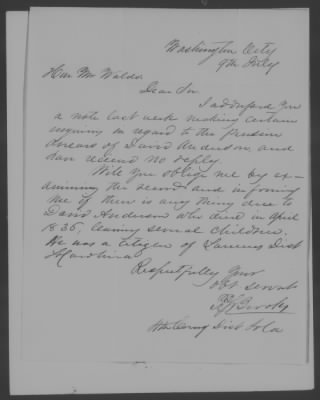 Washington City
9th July
Hon Mr Waldo
Dear Sir
I addressed you
a note last week making certain
enquiry in regard to the pension
arrears of David Anderson, and
have received no reply
Will you oblige me by ex-
amining the record and informing
me if there is any thing due to
David Anderson who died in April
1836, leaving several children.
He was a citizen of Laurens Dist
S Carolina
Respectfully Your
obt servat
Brooks
4th Cong Dist So Ca